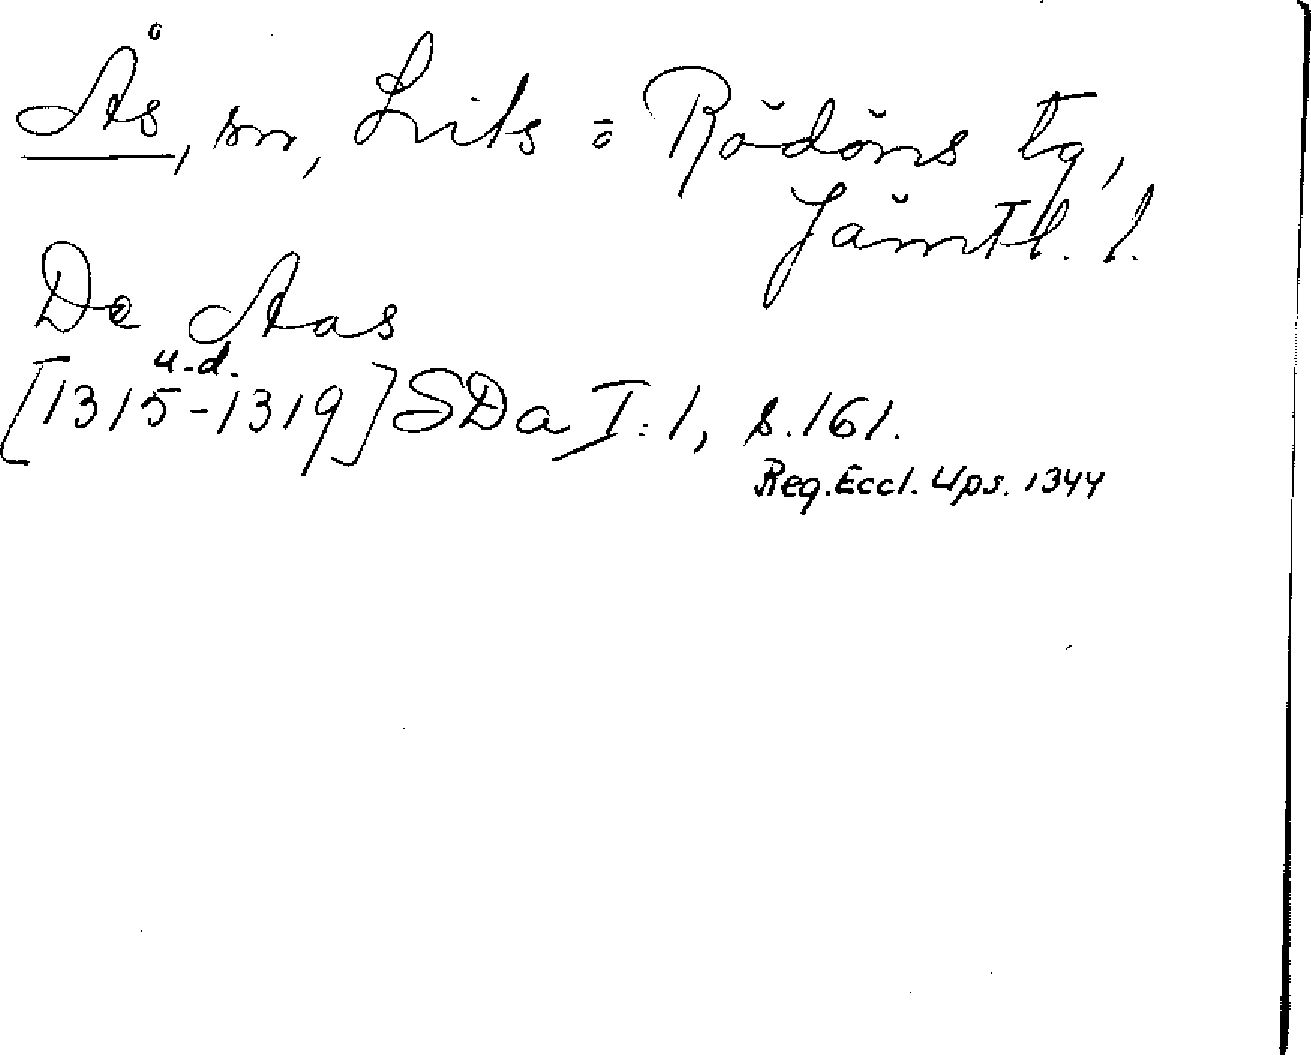 Ås, sn, Lits o Rödöns tg,
Jämtl. l.
De Aas
u.d.
[1315-1319] SDa I:1, s.161.
Reg. Eccl. Ups. 1344